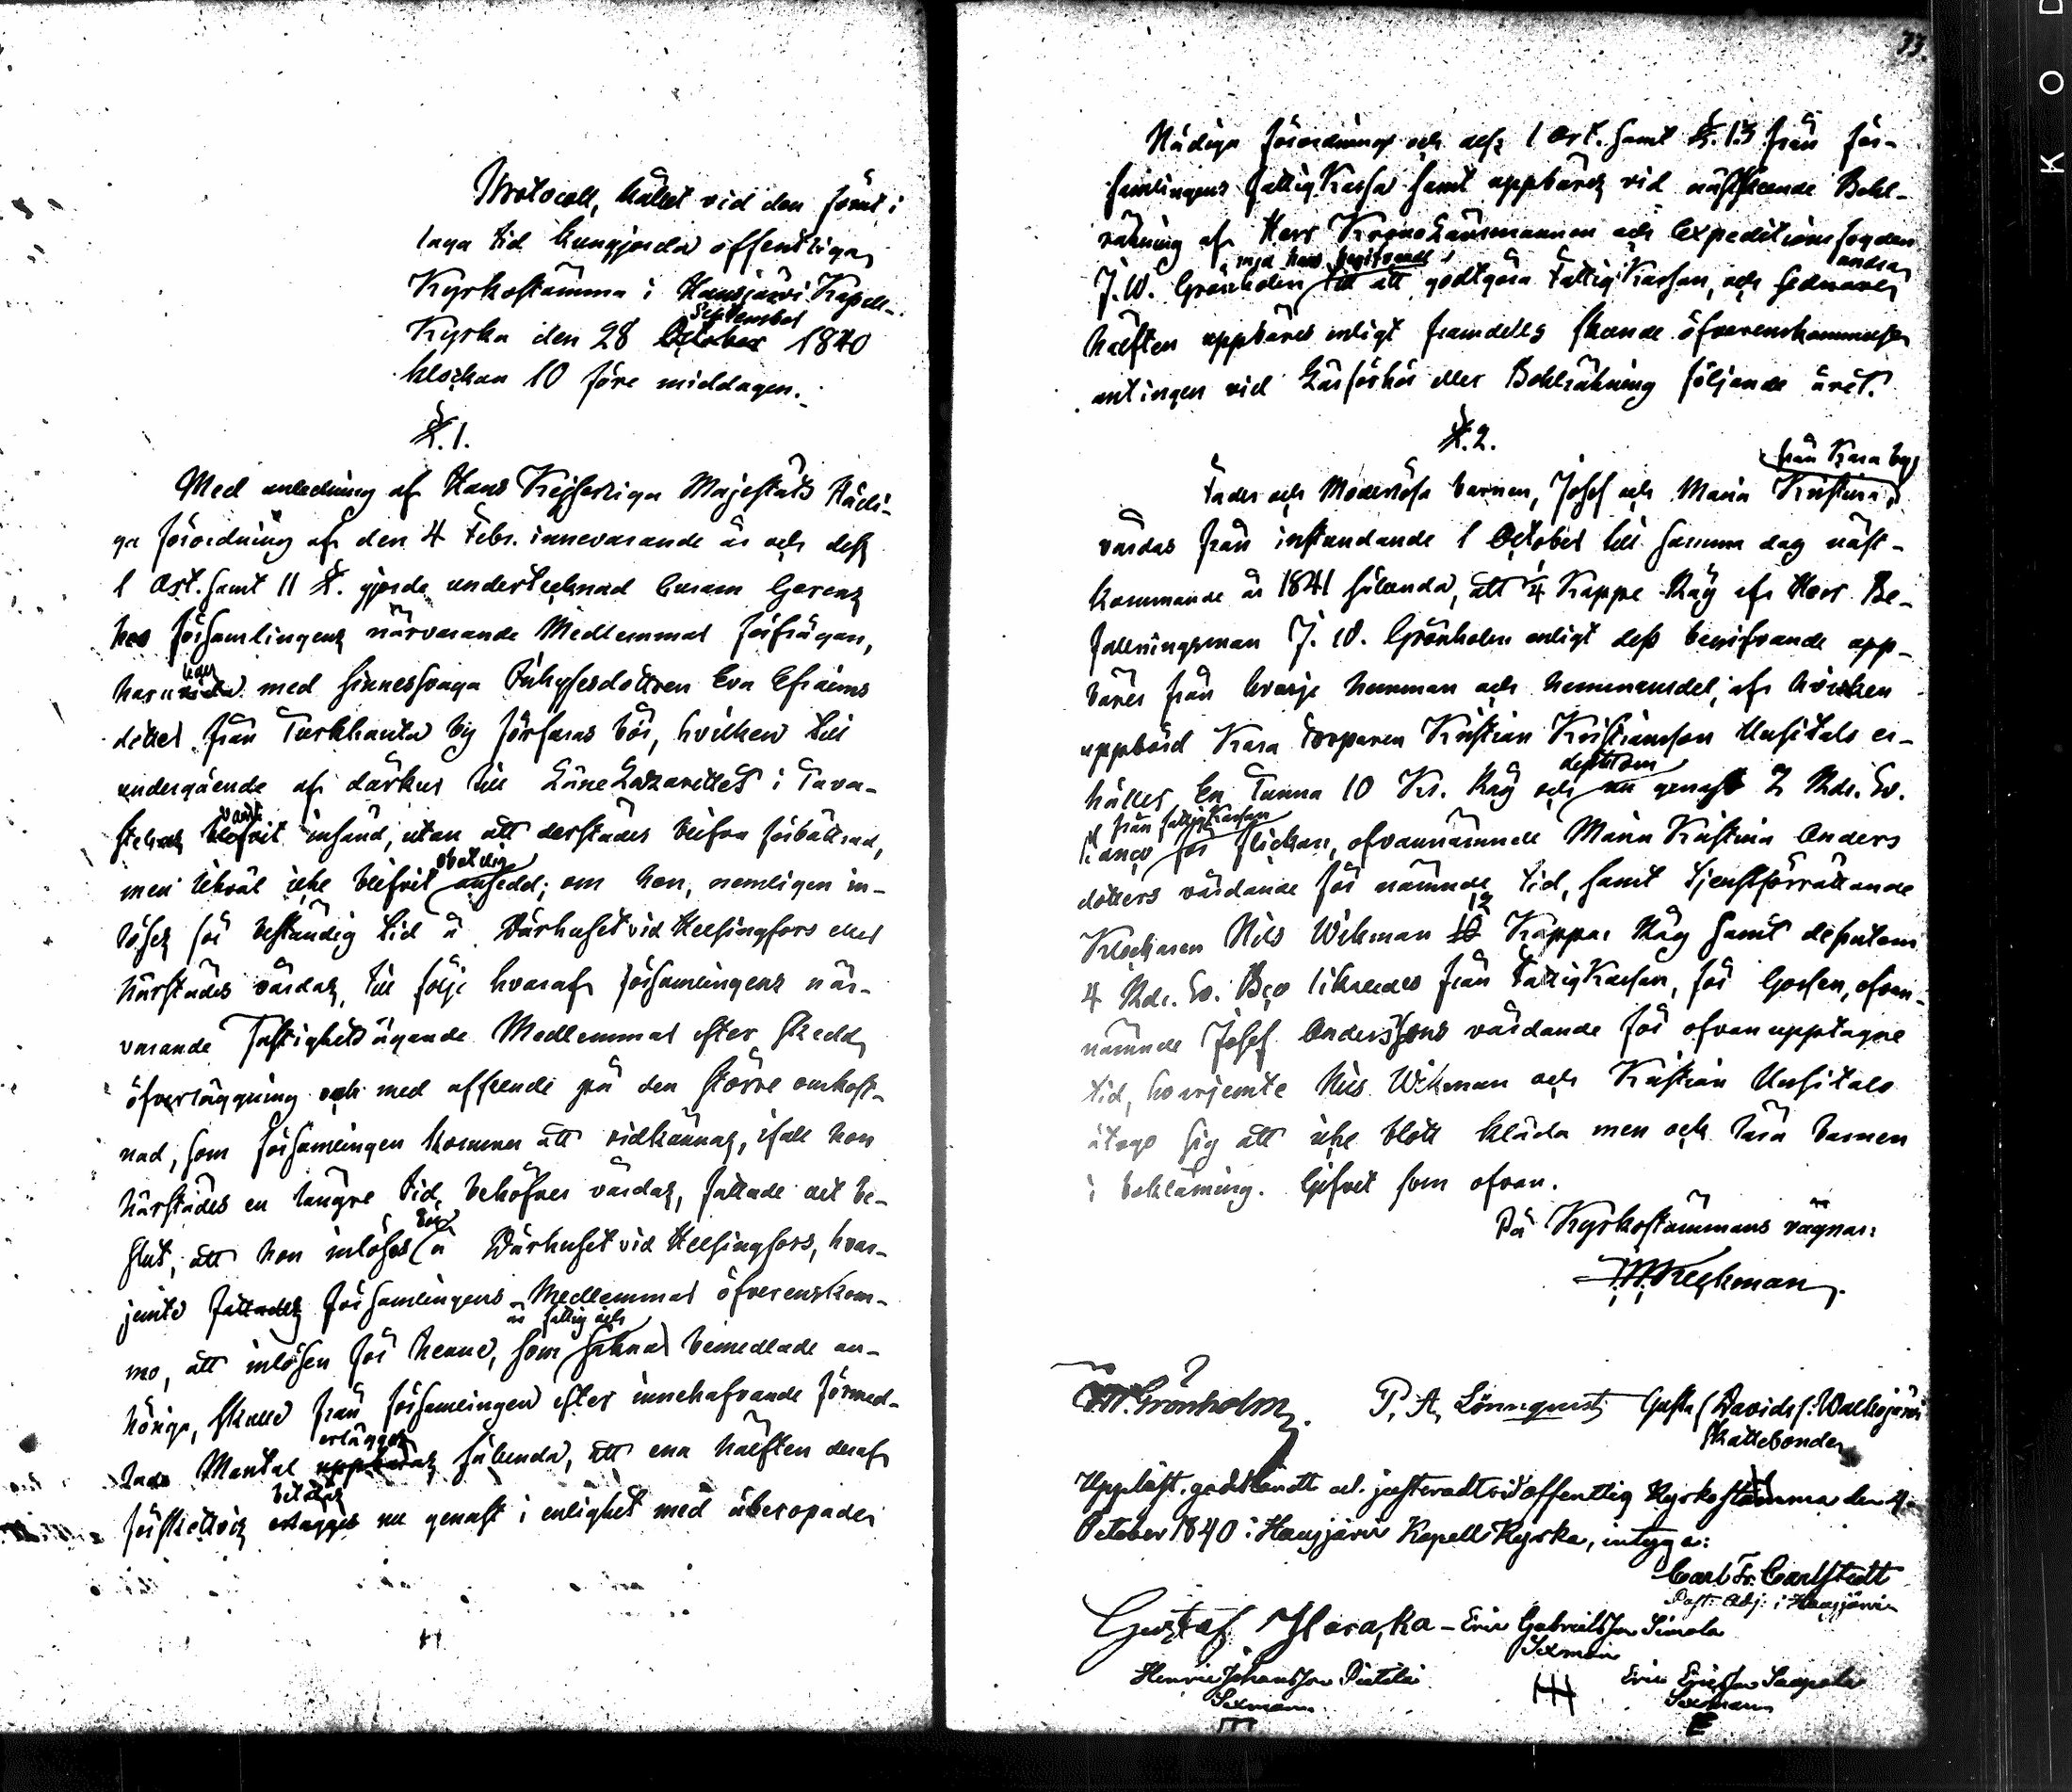 Protocoll, hållet vid den förut i
laga tid kungjorda offentliga
Kyrkostämma i Hausjärvi Kapell-
Kyrka den 28 September 1840
klockan 10 före middagen.
§. 1.
Med anledning af Hans Kejserliga Majestäts Nådi-
ga förordning af den 4 Febr. innevarande år och dess
1 Art. samt 11 §. gjorde undertecknad
hos församlingens närvarande Medlemmar förfrågan,
huru med sinnessvaga Inhysesdottren Eva Efraims
dotter från Turkhauta by förfaras bör, hvilken till
undergående af dårkur till Läne Lazarettet i Tava-
stehus varit insänd, utan att derstädes blifva förbättrad,
men likväl icke blifvit ansedd; om hon, nemligen in-
löses för beständig tid å Dårhuset vid Helsingfors eller
härstädes vårdas, till följe hvaraf församlingens när-
varande Fastighetsägande Medlemmar efter skedd
öfverläggning och med afseende på den större omkost-
nad, som församlingen kommer att vidkännas, ifall hon
härstädes en längre tid behöfver vårdas, fattade det be-
slut, att hon inlöses å Dårhuset vid Helsingfors, hvar-
jemte församlingens Medlemmar öfverenskom-
mo, att inlösen för henne, som är fattig och saknar bemedlade an-
höriga, skulle från församlingen efter innehafvande förmed-
lade Mantal erlägges sålunda, att ena hälften deraf
förskottvis betalas nu genast i enlighet med åberopade
33.
Nådiga förordning och dess 1 Art. samt §. 13 från för-
samlingens Fattig Kassa samt uppbäres vid nästskeende Bohl-
räkning af Herr Krono Länsmannen och Expeditionsfogden
J. W. Grönholm med hans begifvande till att godtgöra Fattig Kassan, och sednare andra
hälften uppbäres enligt framdeles skeende öfverenskommelse
antingen vid Läsförhör eller Bohlräkning följande året.
§. 2.
Fader och Moderlösa barnen, Josef och Maria Kristina från Kara by
vårdas från instundande 1 October till samma dag näst-
kommande år 1841 sålunda, att 1/4 Kappe Råg af Herr Be-
fallningsman J. W. Grönholm enligt dess begifvande upp-
bäres från hvarje hemman och hemmansdel, af hvilken
uppbörd Kara Torparen Kristian Kristiansson Uusitalo er-
håller En Tunna 10 Kr. Råg och dessutom nu genast 7 Rdr. Sv.
Banco från fattig Kassan för flickan, ofvannämnde Maria Kristina Anders
dotters vårdande för nämnde tid, samt tjenstförrättande
Klockaren Nils Wikman 12 Kappar Råg samt dessutom
4 Rdr. Sv. Bco likaledes från Fattig Kassan, för Gossen, ofvan-
nämnde Josef Anderssons vårdande för ofvan upptagne
tid, hvarjemte Nils Wikman och Kristian Uusitalo
åtogo sig att icke blott kläda men och lära barnen
i bokläsning. Gifvet som ofvan.
På Kyrkostämmans vägnar:
Reckman.
J. W. Grönholm. P. A. Lönnqvist Gusta Davids s: Walkojärvi
Skattebonde
Uppläst, godkändt och justeradt vid offentlig Kyrkostämma den 4
October 1840 i Hausjärvi Kapell Kyrka, intyga:
Carl Fr. Carlstedt
Past: Adj: i Hausjärvi
Gustaf Haraka - Eric Gabrielsson Simola
Sexman
Henric Johansson Pietilä Eric Ericsson Seppälä
Sexman Sexman